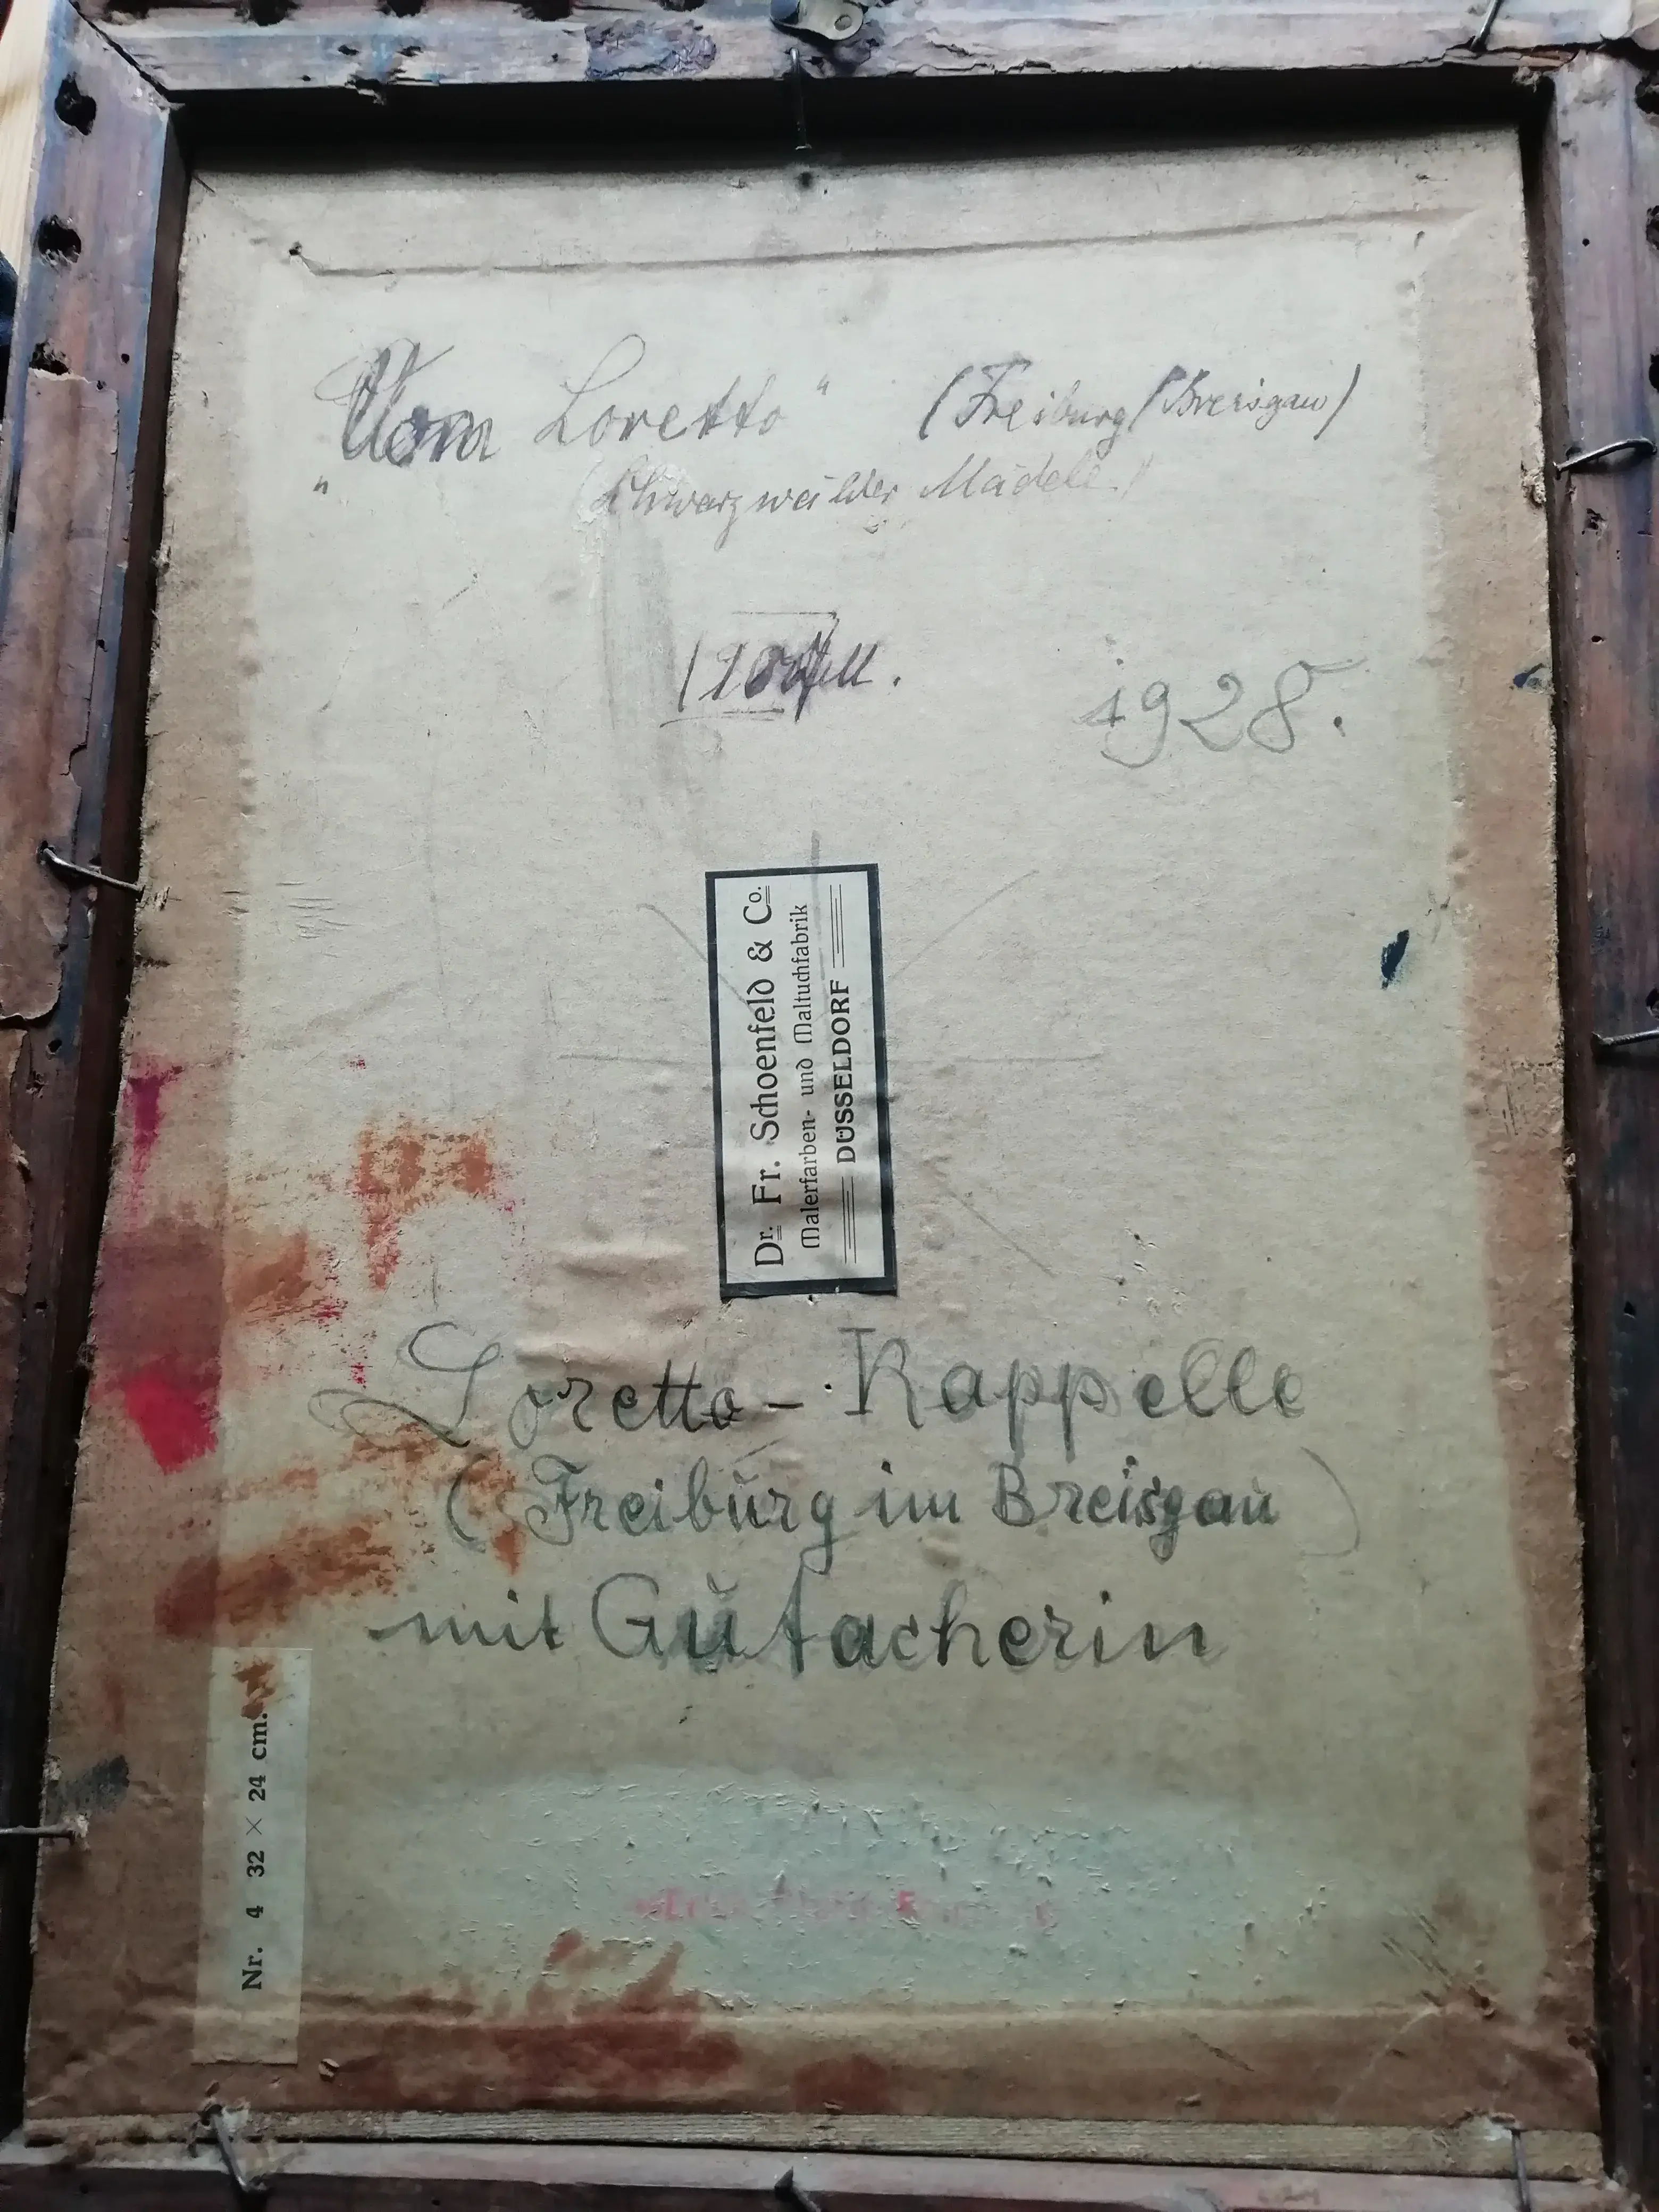 „Vom Loretto“ (Freiburg/Breisgau)
(Schwarzwälder Mädele)
1928.
Dr. Fr. Schoenfeld & Co.
Malerfarben- und Maltuchfabrik
DÜSSELDORF
Loretto-Kappelle
(Freiburg im Breisgau)
mit Gutacherin
Nr. 4 32 × 24 cm.